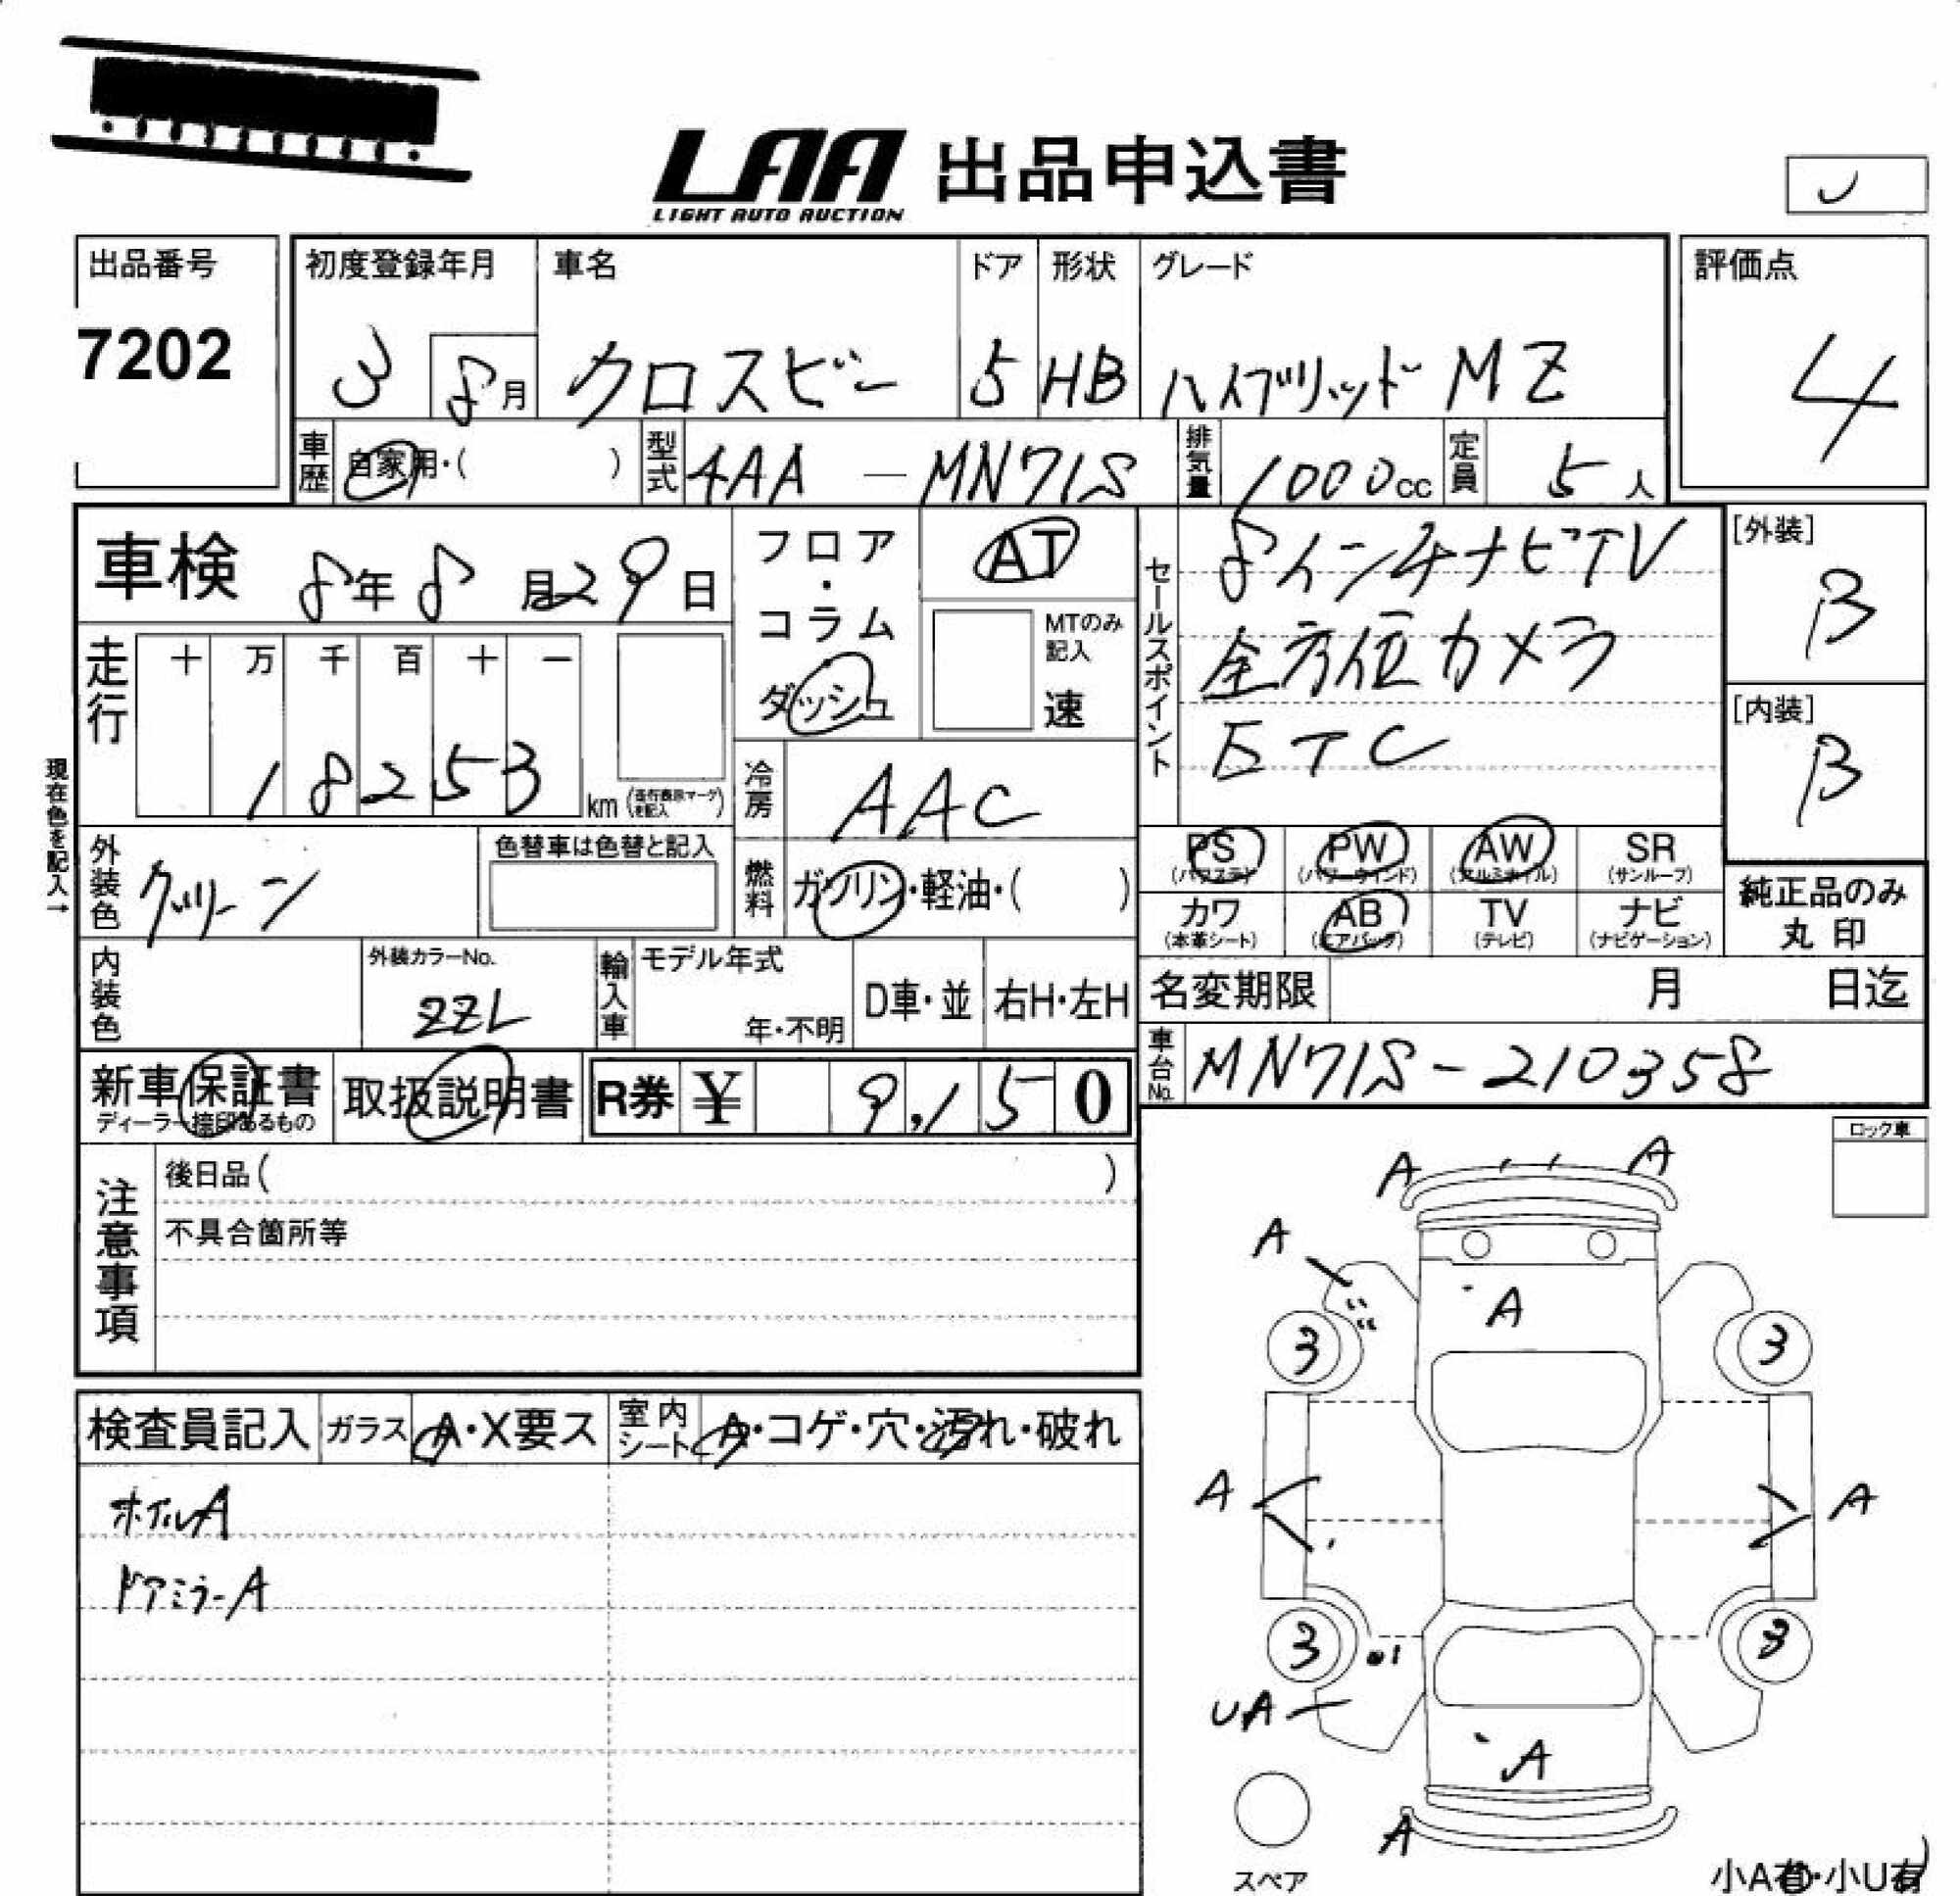 LAA 出品申込書
LIGHT AUTO AUCTION
出品番号
7202
初度登録年月
3 8月
車名
クロスビー
ドア
5
形状
HB
グレード
ハイブリッド MZ
評価点
4
車歴 自家用・( )
型式 4AA - MN71S
排気量 1000cc
定員 5人
車検 8年8月29日
フロア・コラム・ダッシュ
AT
MTのみ記入
速
走行
十 万 千 百 十 一
1 8 2 5 3 km (走行表示マークを記入)
現在色を記入→
冷房 AAC
外装色 グリーン
色替車は色替と記入
燃料 ガソリン・軽油・( )
内装色
外装カラーNo.
ZZL
輸入車
モデル年式
年・不明
D車・並
右H・左H
セールスポイント
8インチナビTV
全方位カメラ
ETC
[外装]
B
[内装]
B
PS (パワステ) PW (パワーウインド) AW (アルミホイル) SR (サンルーフ)
カワ (本革シート) AB (エアバッグ) TV (テレビ) ナビ (ナビゲーション)
純正品のみ丸印
名変期限 月 日迄
車台No. MN71S-210358
新車保証書
ディーラー捺印あるもの
取扱説明書
R券 ¥ 9,150
注意事項
後日品( )
不具合箇所等
ロック車
検査員記入
ガラス A・X要ス
室内シート A・コゲ・穴・汚れ・破れ
ホイルA
ドアミラーA
A A
A
A
3 3
A A
3 3
UA
A
A
スペア
小A有・小U有